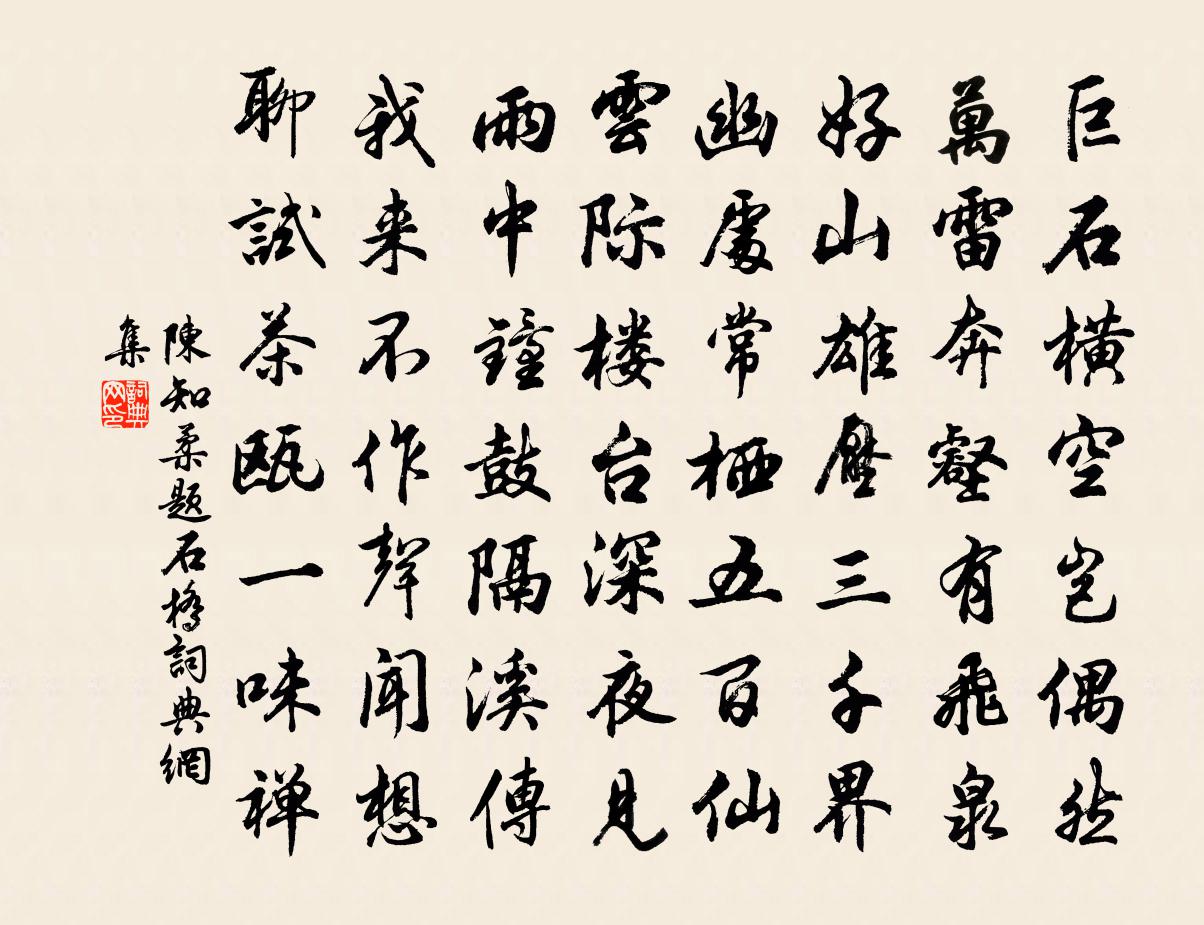 巨石橫空岂偶然
萬雷奔壑有飛泉
好山雄壓三千界
幽處常栖五百仙
雲际楼台深夜見
雨中鐘鼓隔溪傳
我来不作聲聞想
聊試茶瓯一味禅
陳知柔题石橋詞典網
集
詞典
网印